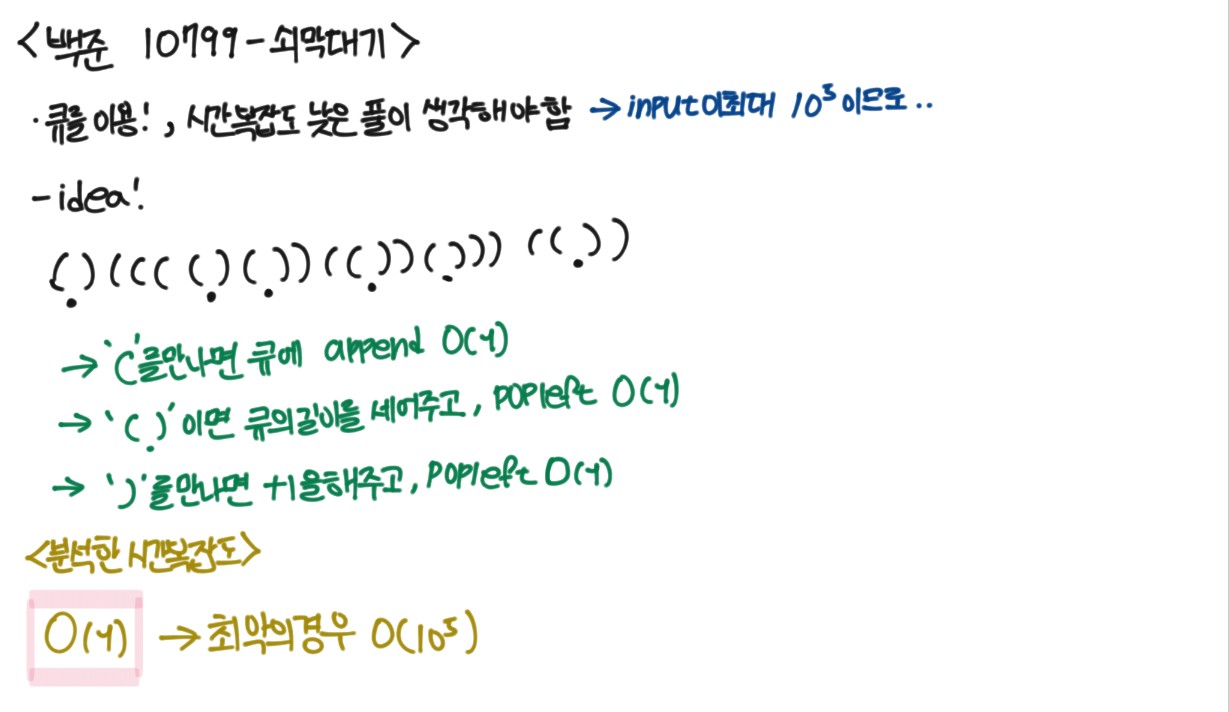 <백준 10799 - 쇠막대기>
· 큐를 이용! , 시간복잡도 낮은 풀이 생각해야함 → input이 최대 10⁵ 이므로..
- idea!
()(((()())(())()))(())
→ '('를 만나면 큐에 append O(1)
→ '()'이면 큐의 길이를 세어주고, popleft O(1)
→ ')'를 만나면 +1을 해주고, popleft O(1)
<분석한 시간복잡도>
O(1) → 최악의 경우 O(10⁵)